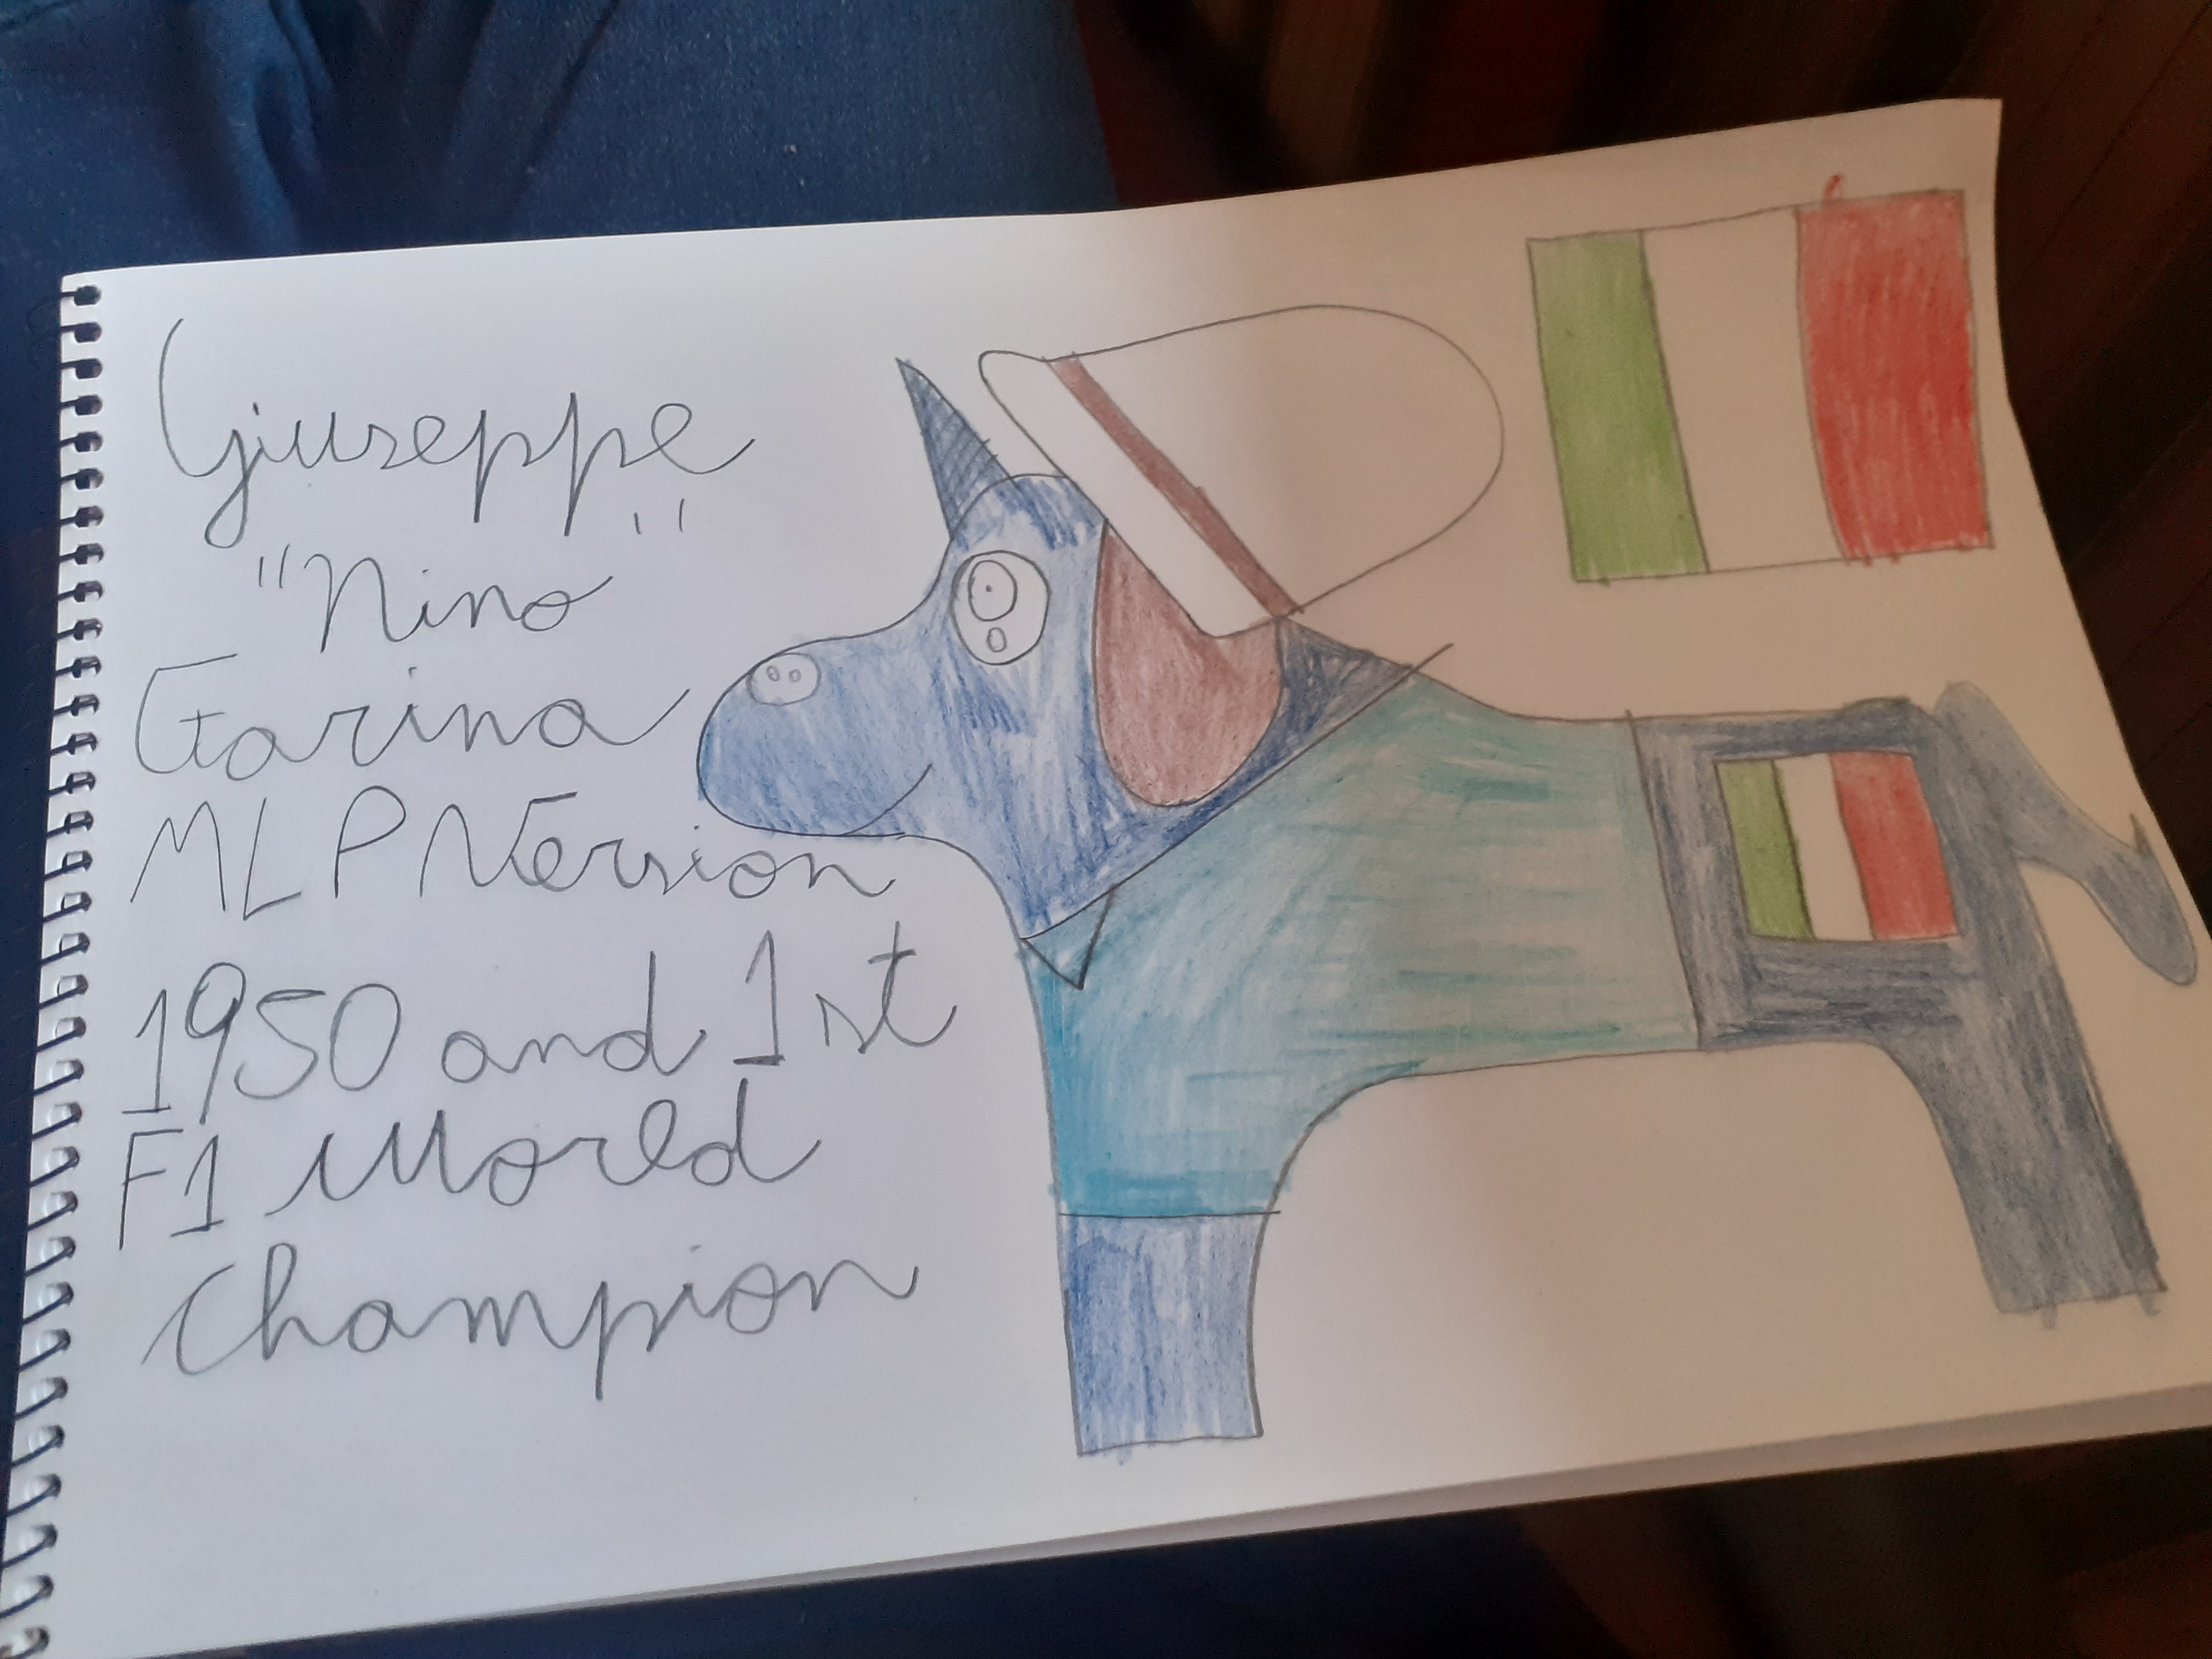 Giuseppe
"Nino"
Farina
MLP Version
1950 and 1st
F1 World
Champion